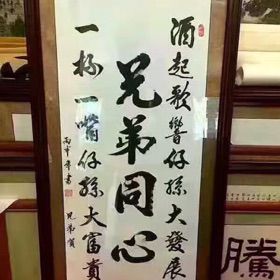 酒起歌響仔孫大發展
兄弟同心
一杯一嘴仔孫大富貴
丙申年書
兄弟賀
騰